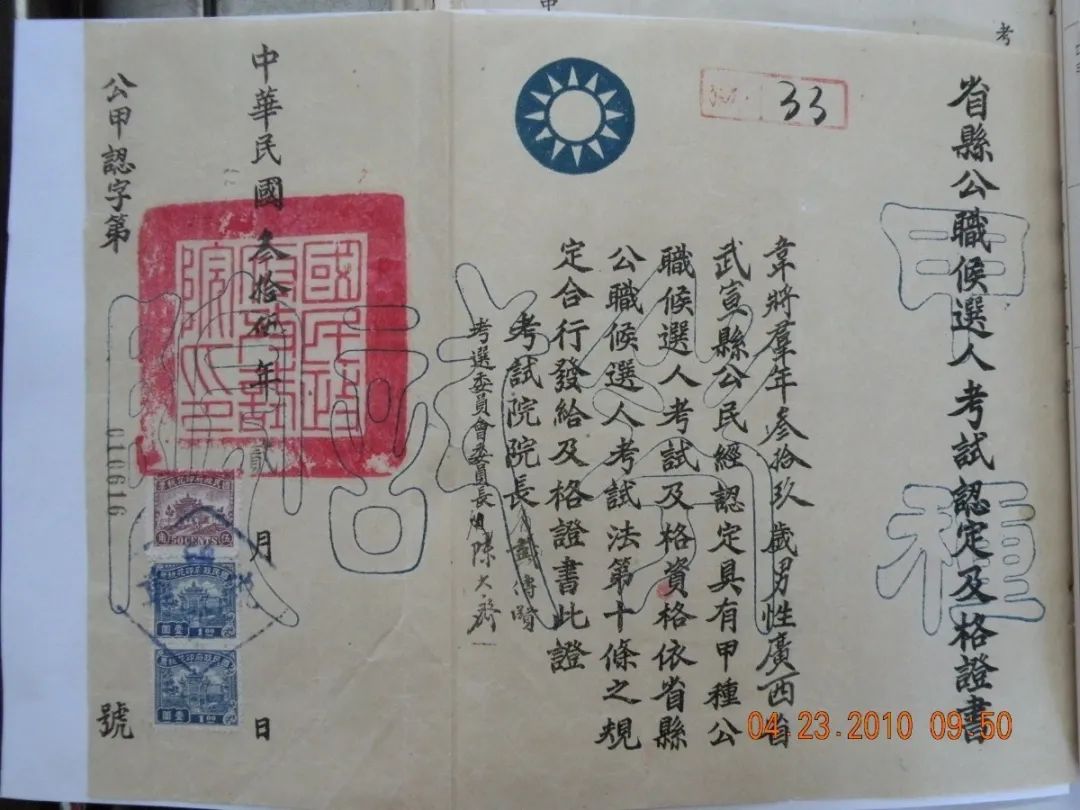 考
33
省縣公職候選人考試認定及格證書
甲種
韋將羣年叁拾玖歲男性廣西省
武宣縣公民經認定具有甲種公
職候選人考試及格資格依省縣
公職候選人考試法第十條之規
定合行發給及格證書此證
考試院院長戴傳賢
考選委員會委員長陳大齊
中華民國叁拾伍年貳月日
公甲認字第號
016616
50 CENTS
1.00
壹圓
1.00
壹圓
04.23.2010 09:50